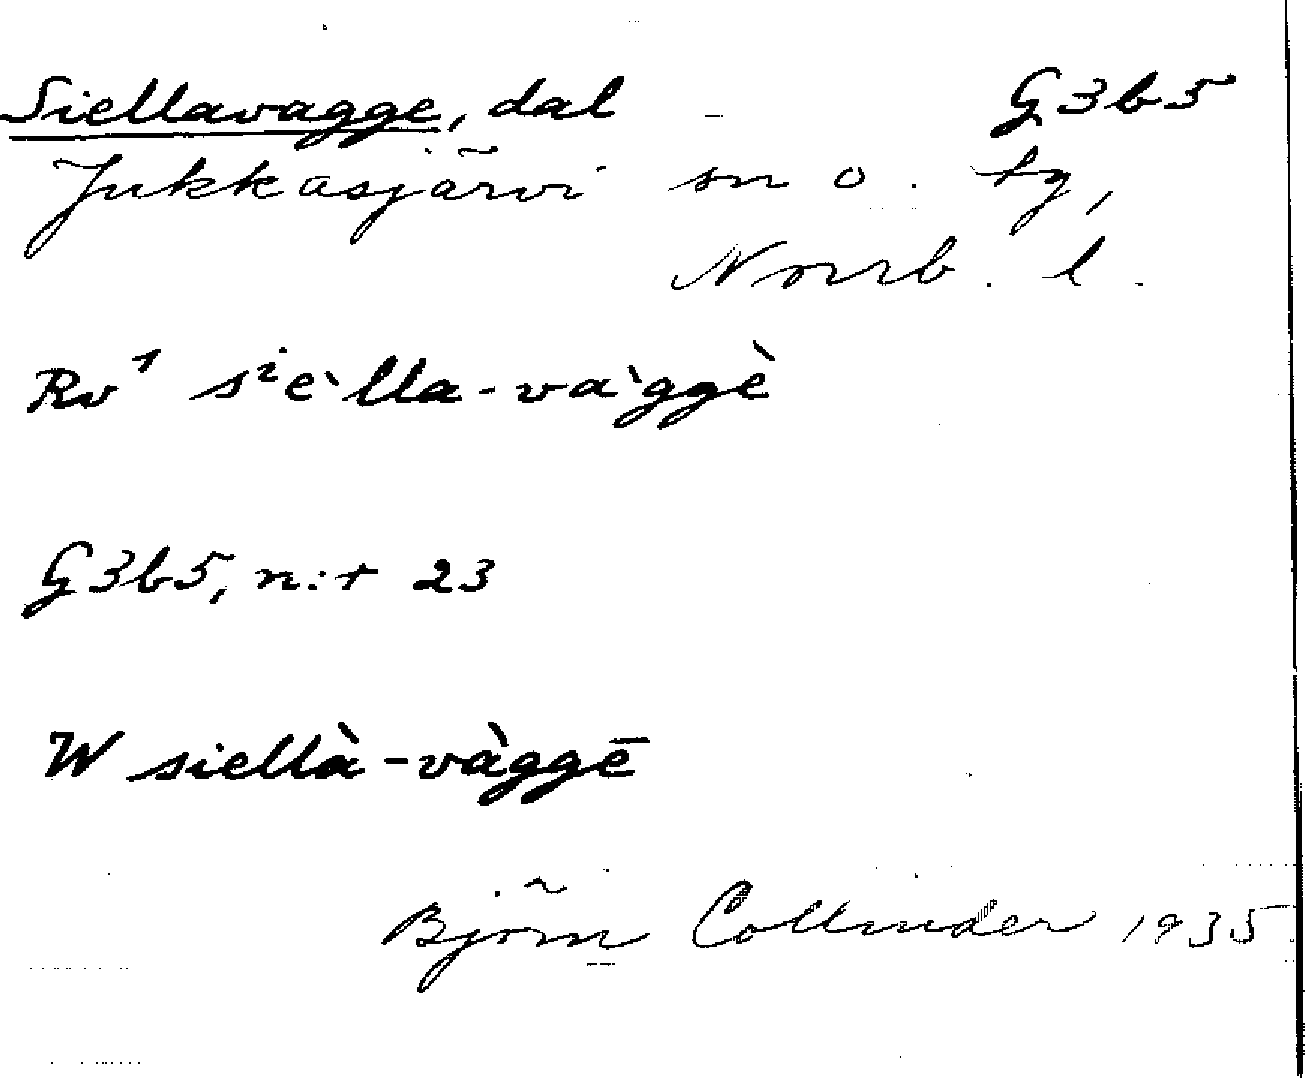 Siellavagge, dal G3b5
Jukkasjärvi sn o. tg,
Norrb. l.
Rv¹ sⁱe`lla-va`ggè
G3b5, n:r 23
W siellà-vàggē
Björn Collinder 1935